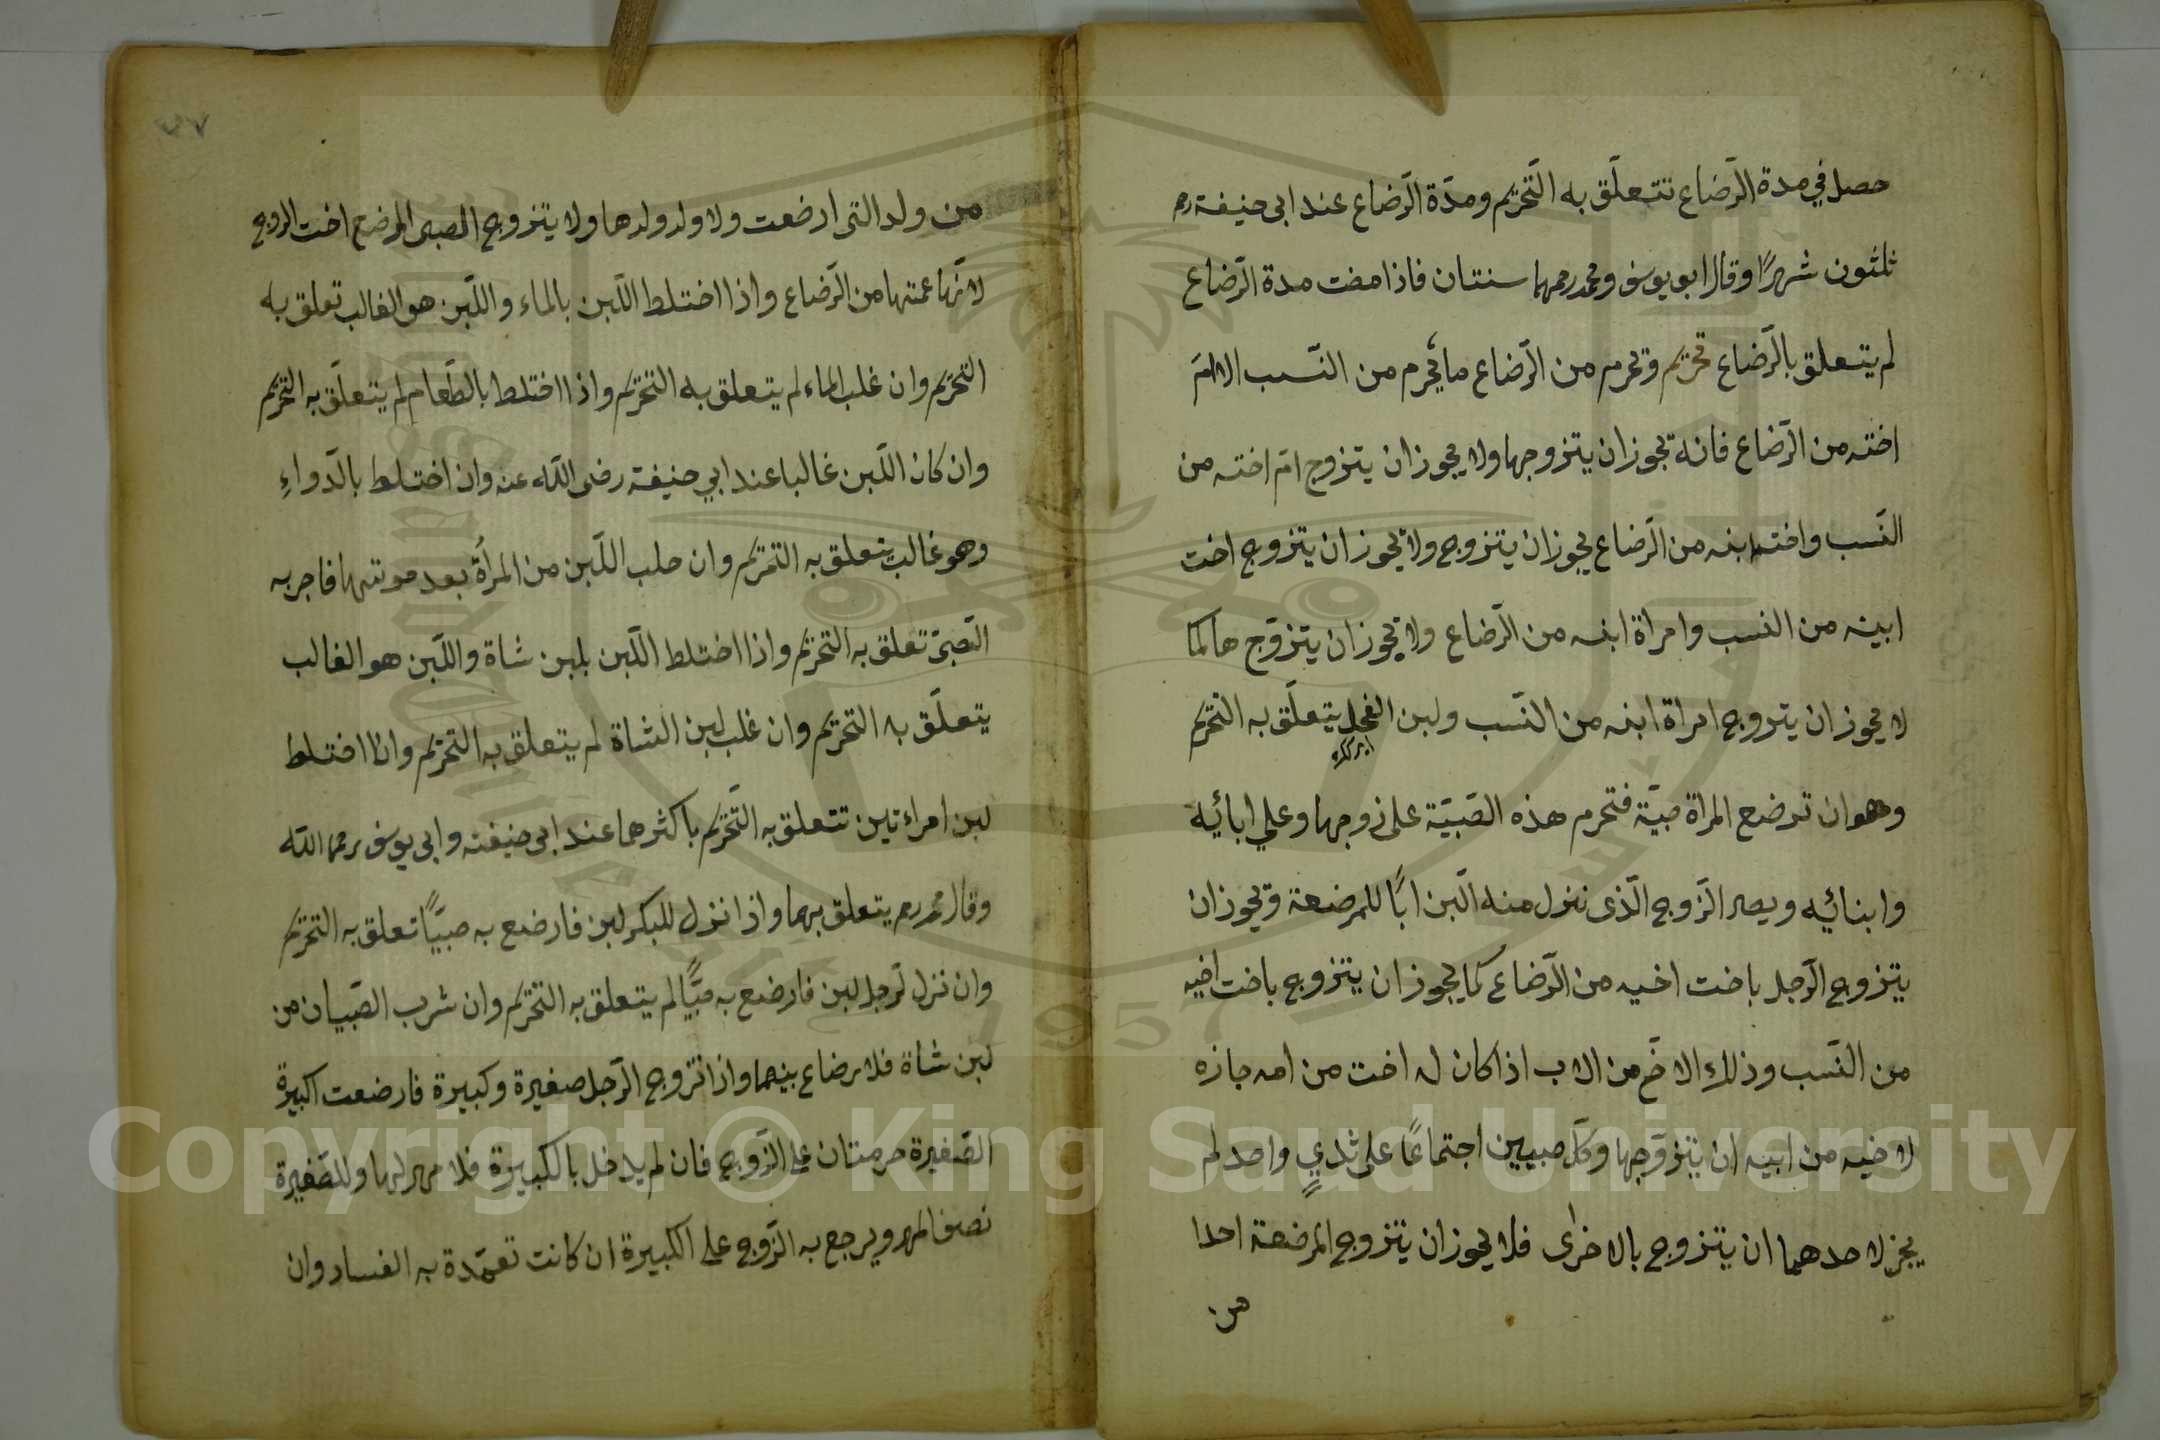 حصل في مدة الرّضاع تتعلّق به التّحريم ومدّة الرّضاع عند ابى حنيفة رحم
ثلثون شهرًا وقال ابو يوسف ومحمد رحمهما سنتان فاذا مضت مدة الرّضاع
لم يتعلق بالرّضاع تحريم وتحرم من الرّضاع ما يحرم من النّسب الا امّ
اخته من الرّضاع فانه يجوز ان يتزوجها ولا يجوز ان يتزوج امّ اخته من
النّسب واخت ابنه من الرّضاع يجوز ان يتزوج ولا يجوز ان يتزوج اخت
ابينه من النسب وامراة ابنه من الرّضاع ولا يجوز ان يتزوّج ها كما
لا يجوز ان يتزوج امراة ابنه من النّسب ولبن الفحل يتعلّق به التحريم
وهو ان ترضع المراة صبيّة فتحرم هذه الصّبيّة على زوجها وعلي ابائيه
وابنائيه ويصير الزّوج الّذى نزل منه الّبن ابًا للمرضعة ويجوز ان
يتزوج الرّجل باخت اخيه من الرّضاع كما يجوز ان يتزوج باخت اخيه
من النّسب وذلك الاخ من الاب اذا كان له اخت من امه جازه
لاخيه من ابيه ان يتزوّجها وكلّ صبيين اجتماعًا على ثديٍ واحد لم
يجز لاحدهما ان يتزوج بالاخرٰى فلا يجوز ان يتزوج المرضعة احدا
من
٣٧
من ولد التى ارضعت ولا ولد ولدها ولا يتزوج الصبى المرضع اخت الزوج
لانّها عمتها من الرّضاع واذا اختلط اللّبن بالماء واللّبن هو الغالب تعلق به
التحريم وان غلب الماء لم يتعلق به التحريم واذا اختلط بالطّعام لم يتعلّق به التحريم
وان كان اللّبن غالبا عند ابي حنيفة رضى اللّه عنه وان اختلط بالدّواءِ
وهو غالب يتعلق به التحريم وان حلب اللّبن من المرأة بعد موتها فاجر به
الصّبىّ تعلق به التحريم واذا اختلط اللّبن بلبن شاة واللّبن هو الغالب
يتعلّق به التحريم وان غلب لبن الشاة لم يتعلق به التحريم واذا اختلط
لبن امراءتين تتعلق به التّحريم باكثرهما عند ابى حنيفة وابى يوسف رحمهما اللّه
وقال محمد رحم يتعلق بهما واذا نزل للبكر لبن فارضع به صبيًّا تعلق به التحريم
وان نزل لرجل لبن فارضع به صبيًّا لم يتعلق به التحريم وان شرب الصّبيان من
لبن شاة فلا رضاع بينهما واذا تزوج الرّجل صغيرة وكبيرة فارضعت اكبيرة
الصّغيرة حرمتان على الزّوج فان لم يدخل بالكبيرة فلا مهر لها وللصّغيرة
نصف المهر ويرجع به الزّوج على الكبيرة ان كانت تعمّدة به الفساد وان
Copyright © King Saud University
1957